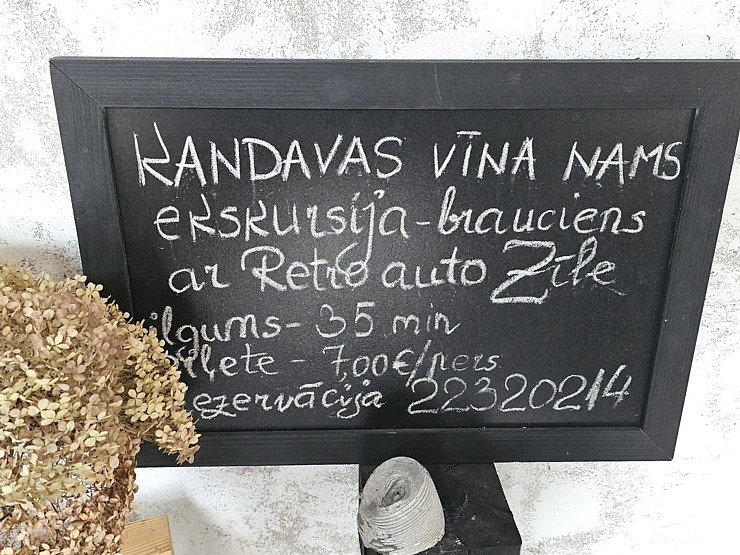 KANDAVAS VĪNA NAMS
ekskursija-brauciens
ar Retro auto Zīle
ilgums- 35 min
biļete - 7,00€/pers
rezervācija 22320214